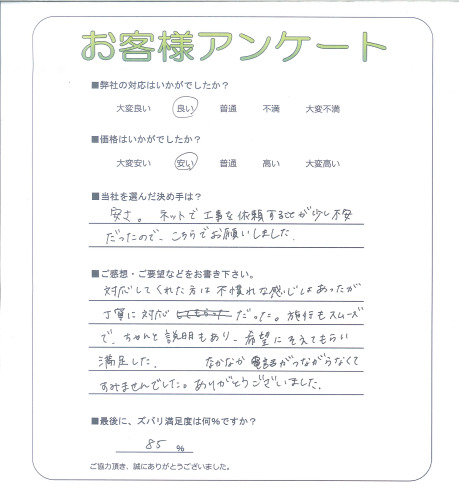 お客様アンケート
■弊社の対応はいかがでしたか？
大変良い 良い 普通 不満 大変不満
■価格はいかがでしたか？
大変安い 安い 普通 高い 大変高い
■当社を選んだ決め手は？
安さ。ネットで工事を依頼することが少し不安
だったので、こちらでお願いしました。
■ご感想・ご要望などをお書き下さい。
対応してくれた方は不慣れな感じはあったが
丁寧に対応 だった。施行もスムーズ
で、ちゃんと説明もあり、希望にそえてもらい
満足した。 なかなか電話がつながらなくて
すみませんでした。ありがとうございました。
■最後に、ズバリ満足度は何％ですか？
85 %
ご協力頂き、誠にありがとうございました。